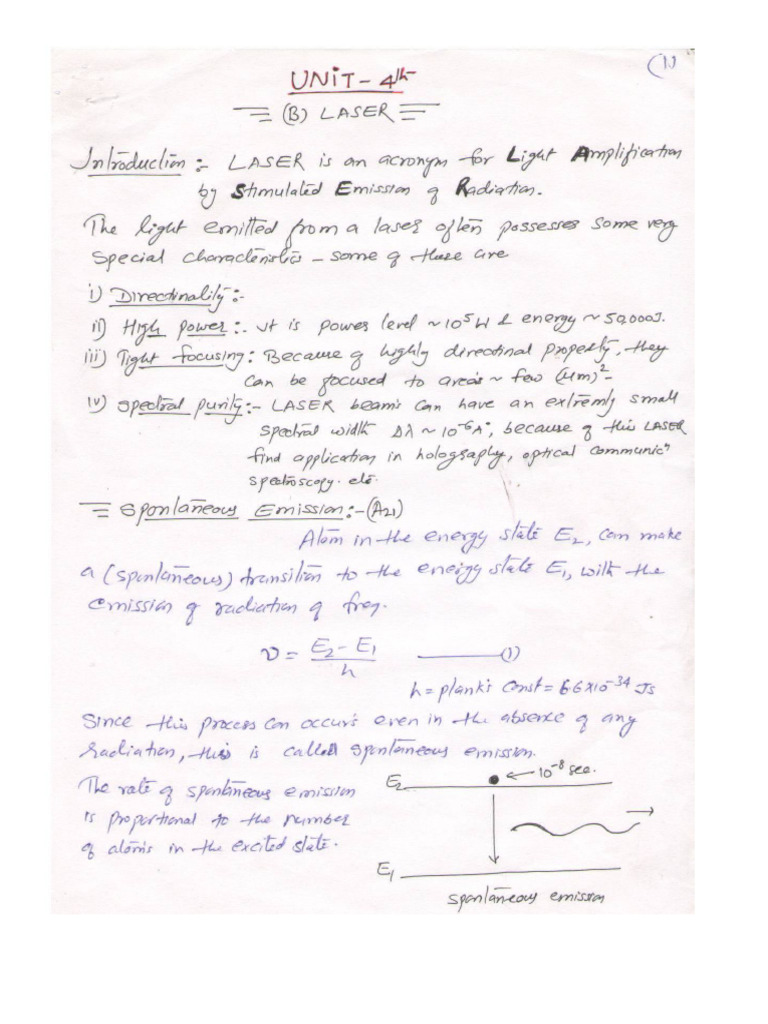 (1)
UNIT - 4th
(B) LASER
Introduction :- LASER is an acronym for Light Amplification
by Stimulated Emission of Radiation.
The light emitted from a laser often possesses some very
special characteristics - some of these are
i) Directinality :-
ii) High power :- It is power level ~ 10^5 W & energy ~ 50,000J.
iii) Tight focusing : Because of highly directinal property, they
can be focused to areas ~ few (μm)^2-
iv) Spectral purity :- LASER beams can have an extremly small
spectral width Δλ ~ 10^-6 A°, because of this LASER
find application in holography, optical communic^n
spectroscopy. etc.
Spontaneous Emission :- (A21)
Atom in the energy state E2, can make
a (spontaneous) transition to the energy state E1, with the
emission of radiation of freq.
ν = (E2 - E1)/h ——— (1)
h = plank's const = 6.6x10^-34 Js
Since this process can occurs even in the absence of any
radiation, this is called spontaneous emission.
The rate of spontaneous emission
is proportional to the number
of atoms in the excited state.
E2 ← 10^-8 sec.
E1
spontaneous emission